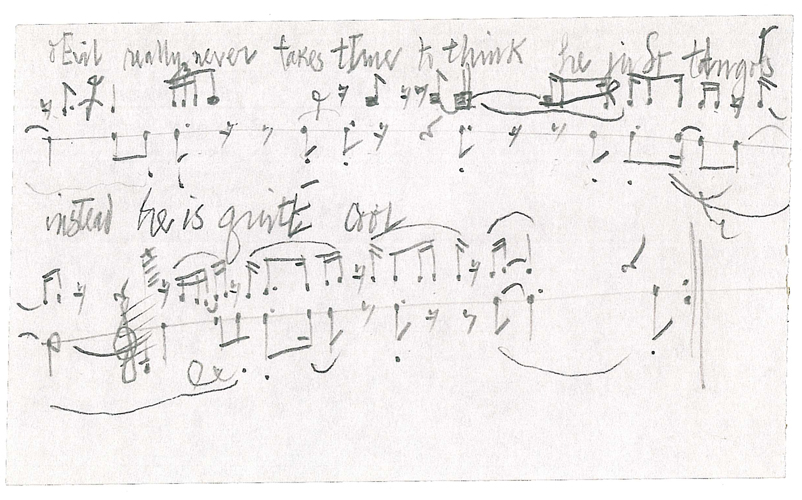 Evil really never takes time to think he just tangos
instead he is quite cool